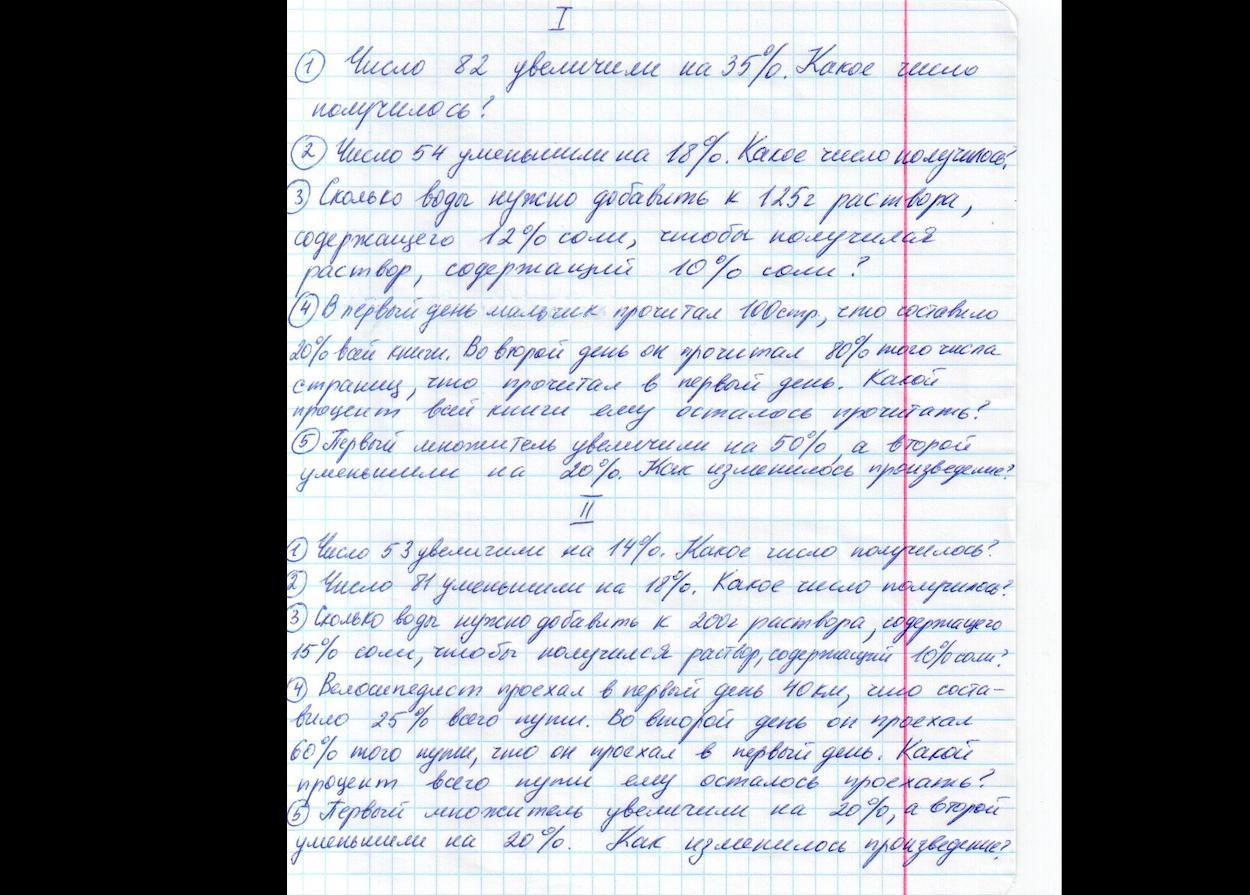 I
1 Число 82 увеличили на 35%. Какое число
получилось?
2 Число 54 уменьшили на 18%. Какое число получилось?
3 Сколько воды нужно добавить к 125г раствора,
содержащего 12% соли, чтобы получился
раствор, содержащий 10% соли?
4 В первый день мальчик прочитал 100стр, что составило
20% всей книги. Во второй день он прочитал 80% того числа
страниц, что прочитал в первый день. Какой
процент всей книги ему осталось прочитать?
5 Первый множитель увеличили на 50%, а второй
уменьшили на 20%. Как изменилось произведение?
II
1 Число 53 увеличили на 14%. Какое число получилось?
2 Число 81 уменьшили на 18%. Какое число получилось?
3 Сколько воды нужно добавить к 200г раствора, содержащего
15% соли, чтобы получился раствор, содержащий 10% соли?
4 Велосипедист проехал в первый день 40км, что соста-
вило 25% всего пути. Во второй день он проехал
60% того пути, что он проехал в первый день. Какой
процент всего пути ему осталось проехать?
5 Первый множитель увеличили на 20%, а второй
уменьшили на 20%. Как изменилось произведение?